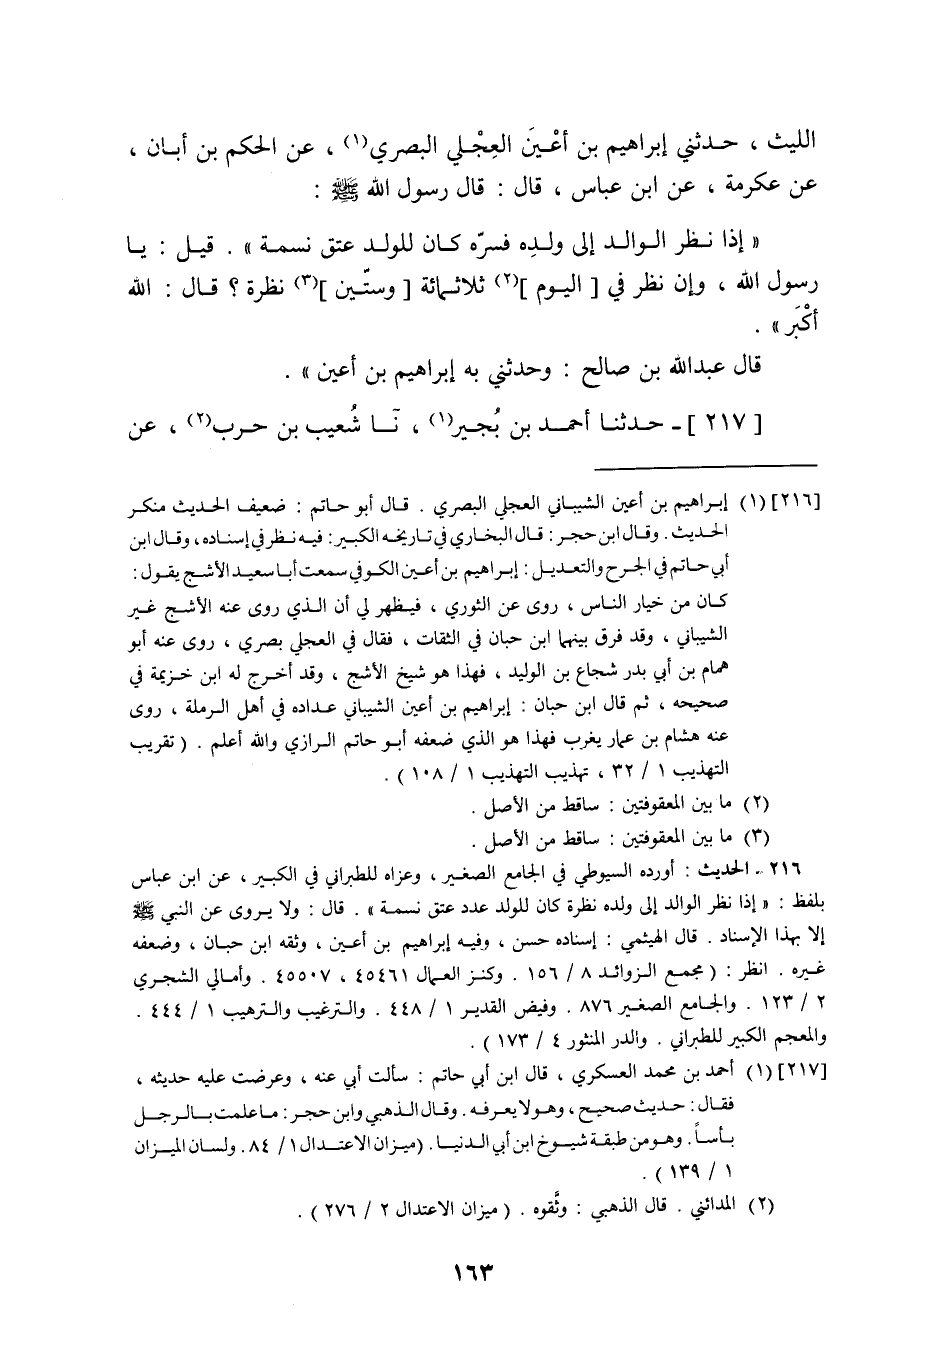 الليث ، حـدثني إبراهيم بن أعْـيَن العِجْـلي البصري(١) ، عن الحكم بن أبـان ،
عن عكرمة ، عن ابن عباس ، قال : قال رسول الله ﷺ :
« إذا نـظر الـوالد إلى ولدِه فسرّه كـان للولد عتق نسمـة » . قيـل : يـا
رسول الله ، وإن نظر في [ اليـوم ](٢) ثلاثـمائة [ وستّـين ](٣) نظرة ؟ قـال : الله
أكْبَر » .
قال عبدالله بن صالح : وحدثني به إبراهيم بن أعين » .
[ ٢١٧ ] ـ حـدثنـا أحمـد بن بُجـير(١) ، نَـا شُعيب بن حـرب(٢) ، عن
[٢١٦] (١) إبـراهيم بن أعين الشيبـاني العجلي البصري . قـال أبو حـاتم : ضعيف الحـديث منكـر
الحديث . وقـال ابن حجر : قـال البخـاري في تـاريخـه الكبير : فيـه نـظر في إسنـاده ، وقـال ابن
أبي حـاتم في الجرح والتعديـل : إبـراهيم بن أعـين الكـوفي سمعت أبـا سعيـد الأشـج يقـول :
كـان من خيار النـاس ، روى عن الثوري ، فيـظهر لي أن الـذي روى عنه الأشـج غـير
الشيباني ، وقـد فرق بينهما ابن حبـان في الثقات ، فقـال في العجلي بصري ، روى عنه أبو
همام بن أبي بدر شجاع بن الوليد ، فهذا هو شيخ الأشج ، وقد أخـرج له ابن خـزيمة في
صحيحه ، ثم قال ابن حبـان : إبراهيم بن أعين الشيبـاني عـداده في أهـل الـرملة ، روى
عنه هشام بن عمار يغرب فهذا هو الذي ضعفه أبـو حاتم الـرازي والله أعلم . ( تقريب
التهذيب ١ / ٣٢ ، تهذيب التهذيب ١ / ١٠٨ ) .
(٢) ما بين المعقوفتين : ساقط من الأصل .
(٣) ما بين المعقوفتين : ساقط من الأصل .
٢١٦ ـ الحديث : أورده السيوطي في الجامع الصغير ، وعزاه للطبراني في الكبـير ، عن ابن عباس
بلفظ : « إذا نظر الوالد إلى ولده نظرة كان للولد عدد عتق نسمة » . قال : ولا يـروى عن النبي ﷺ
إلا بهذا الإسناد . قال الهيثمي : إسناده حسن ، وفيـه إبراهيم بن أعـين ، وثقه ابن حبـان ، وضعفه
غـيره . انظر : ( مجمـع الـزوائـد ٨ / ١٥٦ . وكنـز العـمال ٤٥٤٦١ ، ٤٥٥٠٧ . وأمـالي الشجـري
٢ / ١٢٣ . والجـامع الصغـير ٨٧٦ . وفيض القديـر ١ / ٤٤٨ . والـترغيب والـترهيب ١ / ٤٤٤ .
والمعجم الكبير للطبراني . والدر المنثور ٤ / ١٧٣ ) .
[٢١٧] (١) أحمد بن محمد العسكري ، قال ابن أبي حاتم : سألت أبي عنه ، وعرضت عليه حديثه ،
فقـال : حديث صحيح ، وهـولا يعرفـه . وقـال الـذهبي وابن حجـر : مـا علمت بـالـرجـل
بـأساً . وهـو من طبقـة شيـوخ ابن أبي الـدنيـا . (ميـزان الاعتـدال ١ / ٨٤ . ولسـان الميـزان
١ / ١٣٩ ) .
(٢) المدائني . قال الذهبي : وثَّقوه . ( ميزان الاعتدال ٢ / ٢٧٦ ) .
١٦٣